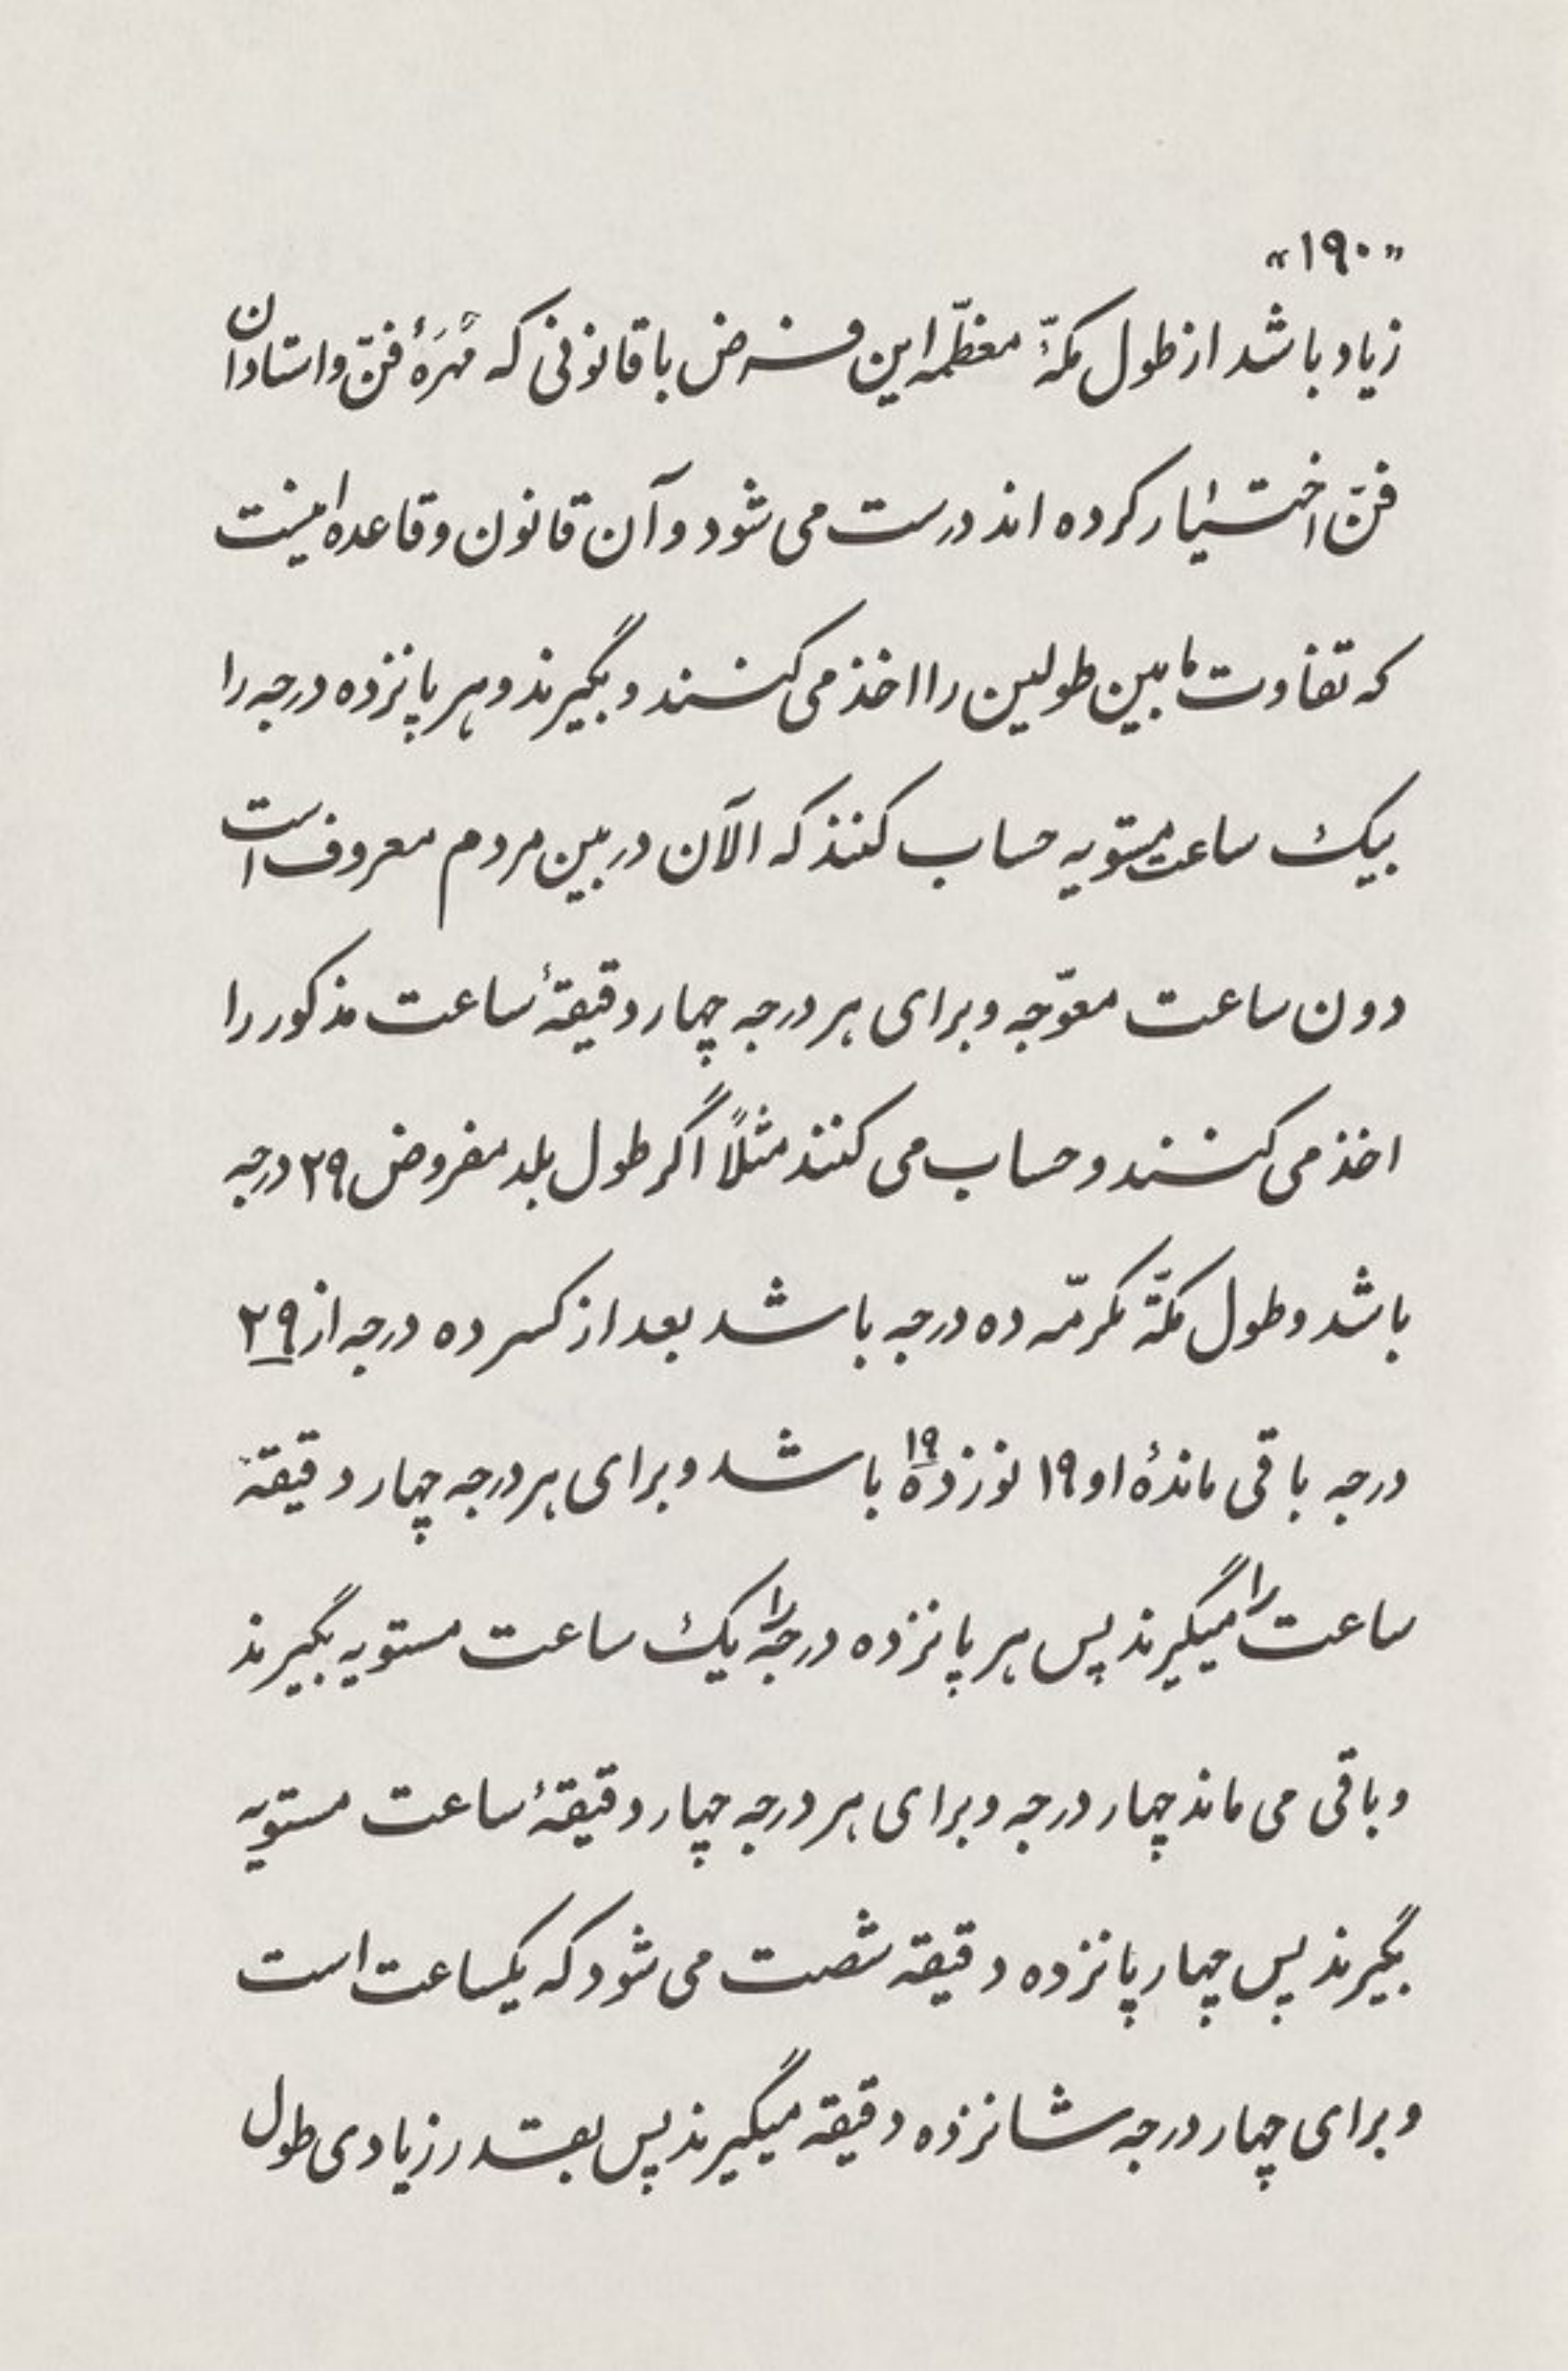 «۱۹۰»
زیاد باشد از طول مکّهٔ معظّمه این فرض با قانونی که مَهَرَهٔ فنّ و استادان
فنّ اختیار کرده اند درست می شود و آن قانون و قاعده اینست
که تفاوت ما بین طولین را اخذ می کنند و بگیرند و هر پانزده درجه را
بیک ساعت مستویه حساب کنند که الآن در بین مردم معروف است
دون ساعت معوّجه و برای هر درجه چهار دقیقهٔ ساعت مذکور را
اخذ می کنند و حساب می کنند مثلاً اگر طول بلد مفروض ۲۹ درجه
باشد و طول مکّهٔ مکرمّه ده درجه باشد بعد از کسر ده درجه از ۲۹
درجه باقی ماندهٔ او ۱۹ نوزده ۱۹ باشد و برای هر درجه چهار دقیقهٔ
ساعت را میگیرند پس هر پانزده درجه را یک ساعت مستویه بگیرند
و باقی می ماند چهار درجه و برای هر درجه چهار دقیقهٔ ساعت مستویه
بگیرند پس چهار پانزده دقیقه شصت می شود که یکساعت است
و برای چهار درجه شانزده دقیقه میگیرند پس بقدر زیادی طول